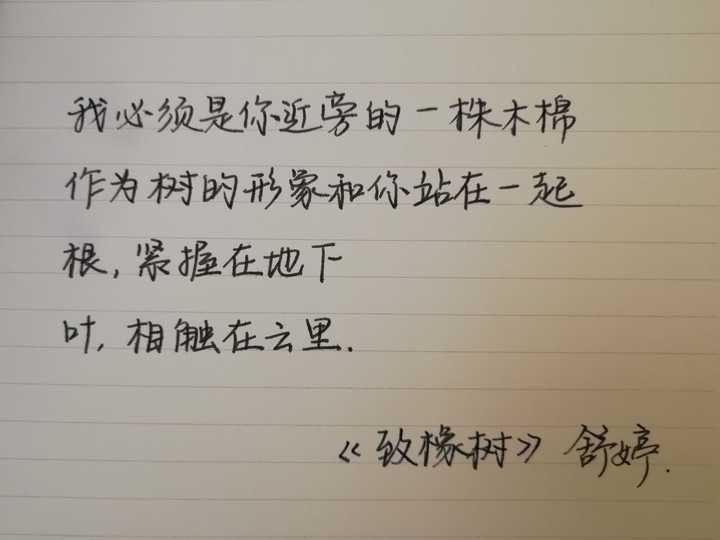 我必须是你近旁的一株木棉
作为树的形象和你站在一起
根,紧握在地下
叶,相触在云里.
《致橡树》 舒婷.